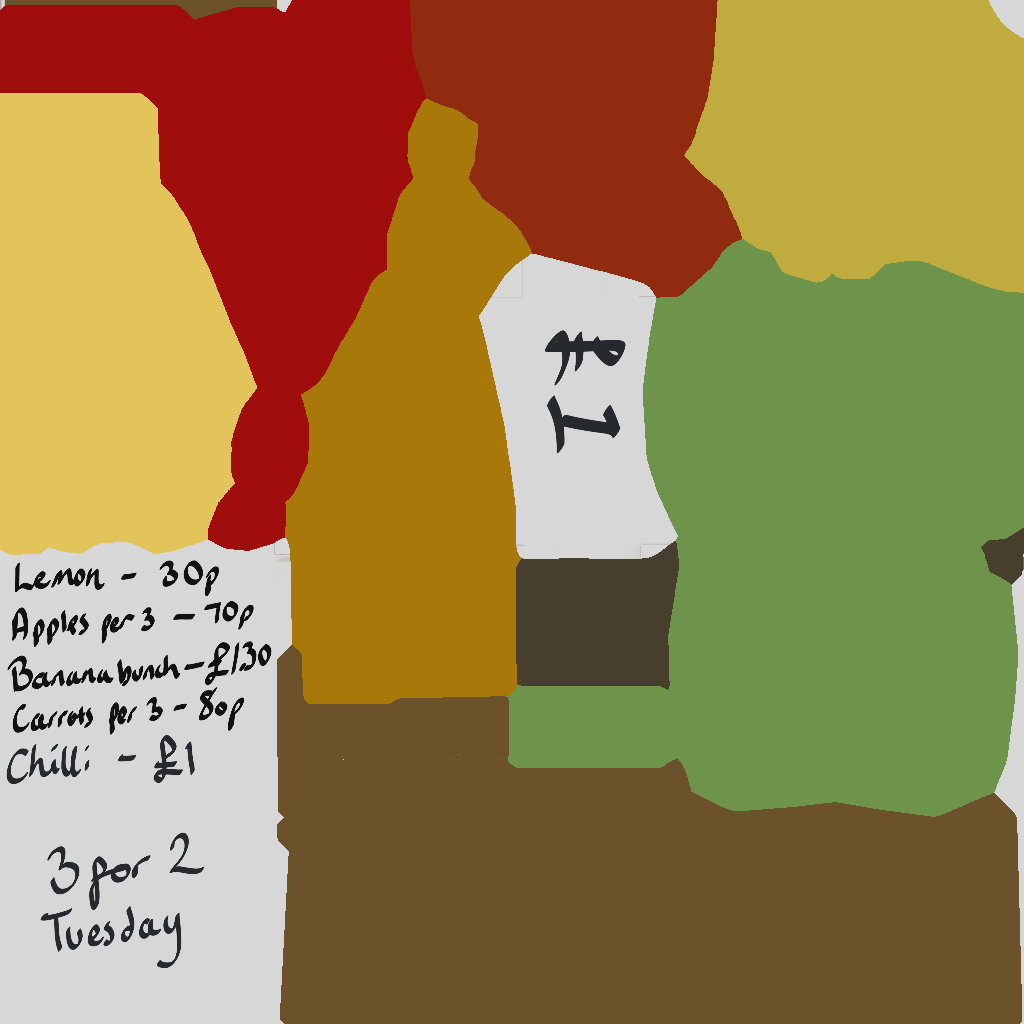 Lemon - 30p
Apples per 3 - 70p
Banana bunch - £1.30
Carrots per 3 - 80p
Chilli - £1
3 for 2
Tuesday
£1